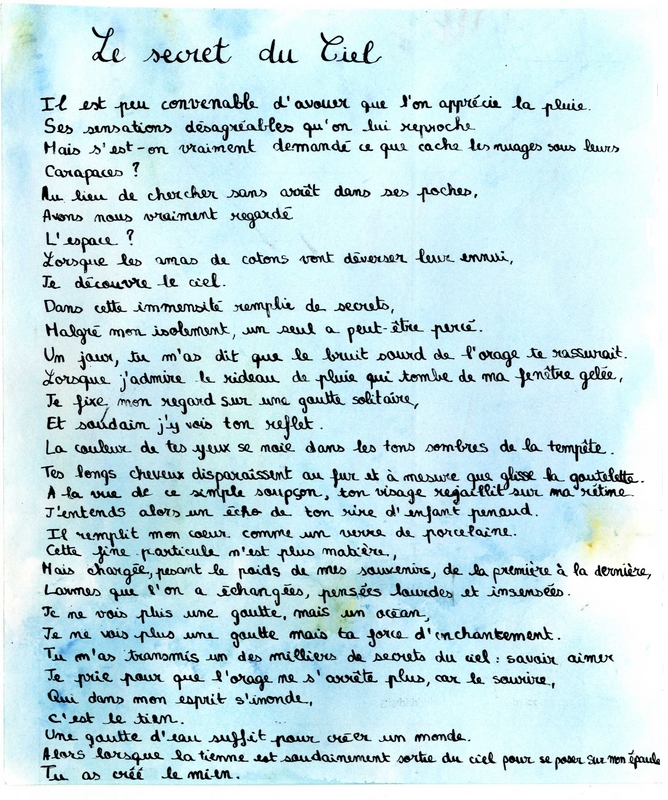 Le secret du Ciel
Il est peu convenable d'avouer que l'on apprécie la pluie.
Ses sensations désagréables qu'on lui reproche
Mais s'est-on vraiment demandé ce que cache les nuages sous leurs
Carapaces ?
Au lieu de chercher sans arrêt dans ses poches,
Avons nous vraiment regardé
L'espace ?
Lorsque les amas de cotons vont déverser leur ennui,
Je découvre le ciel.
Dans cette immensité remplie de secrets,
Malgré mon isolement, un seul a peut-être percé.
Un jour, tu m'as dit que le bruit sourd de l'orage te rassurait.
Lorsque j'admire le rideau de pluie qui tombe de ma fenêtre gelée,
Je fixe mon regard sur une goutte solitaire,
Et soudain j'y vois ton reflet.
La couleur de tes yeux se noie dans les tons sombres de la tempête.
Tes longs cheveux disparaissent au fur et à mesure que glisse la goutelette.
A la vue de ce simple soupçon, ton visage rejaillit sur ma rétine.
J'entends alors un écho de ton rire d'enfant penaud.
Il remplit mon coeur comme un verre de porcelaine.
Cette fine particule n'est plus matière,
Mais chargée, pesant le poids de mes souvenirs, de la première à la dernière,
Larmes que l'on a échangées, pensées lourdes et insensées.
Je ne vois plus une goutte, mais un océan,
Je ne vois plus une goutte mais ta force d'enchantement.
Tu m'as transmis un des milliers de secrets du ciel : savoir aimer
Je prie pour que l'orage ne s'arrête plus, car le sourire,
Qui dans mon esprit s'inonde,
C'est le tien.
Une goutte d'eau suffit pour créer un monde.
Alors lorsque la tienne est soudainement sortie du ciel pour se poser sur mon épaule
Tu as créé le mien.